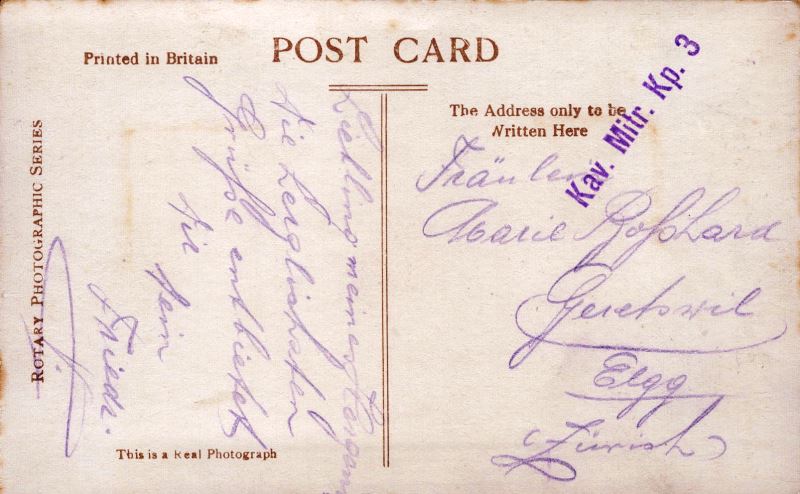 Printed in Britain
POST CARD
ROTARY PHOTOGRAPHIC SERIES
Liebling meines Herzens
die herzlichsten
Grüße entbietet
dir
dein
Friedr.
This is a Real Photograph
The Address only to be
Written Here
Kav. Mitr. Kp. 3
Fräulein
Marie Boßhard
Geretswil
Elgg
(Zürich)